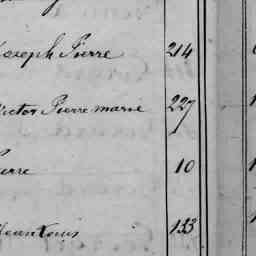 Joseph Pierre 214
Victor Pierre marie 227
Pierre 10
Jean Louis 133